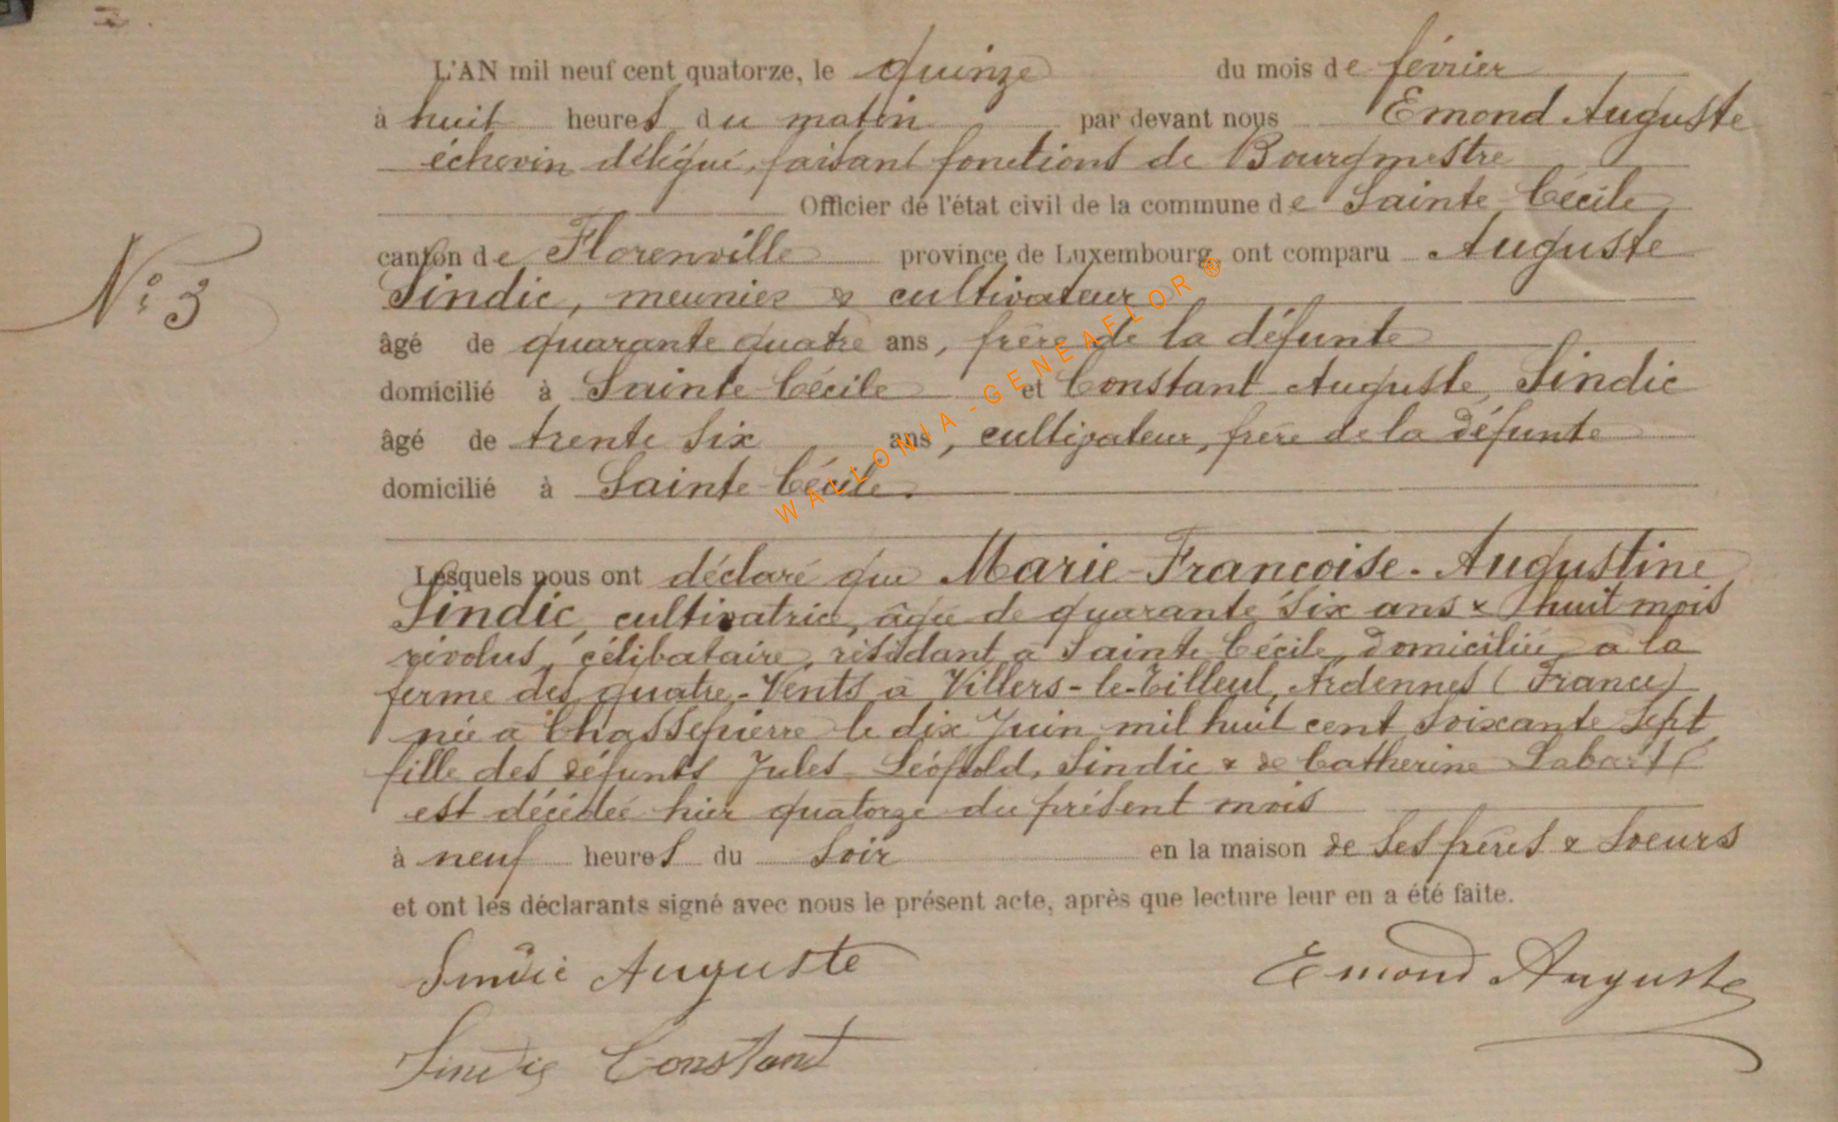 L'AN mil neuf cent quatorze, le quinze du mois de février
à huit heures du matin par devant nous Emond Auguste
échevin délégué, faisant fonctions de Bourgmestre
Officier de l'état civil de la commune de Sainte Cécile
canton de Florenville province de Luxembourg, ont comparu Auguste
Sindic, meunier & cultivateur
N° 3
âgé de quarante quatre ans, frère de la défunte
domicilié à Sainte Cécile et Constant Auguste Sindic
âgé de trente six ans, cultivateur, frère de la défunte
domicilié à Sainte Cécile.
WALLONIA-GENEAFLOR ®
Lesquels nous ont déclaré que Marie-Françoise-Augustine
Sindic, cultivatrice, âgée de quarante six ans & huit mois
révolus, célibataire, résidant à Sainte Cécile, domiciliée à la
ferme des quatre-Vents à Villers-le-Tilleul, Ardennes (France)
née à Chassepierre le dix Juin mil huit cent soixante sept,
fille des défunts Jules Léopold Sindic & de Catherine
est décédée hier quatorze du présent mois
à neuf heures du soir en la maison de ses frères & soeurs
et ont les déclarants signé avec nous le présent acte, après que lecture leur en a été faite.
Sindic Auguste Emond Auguste
Sindic Constant